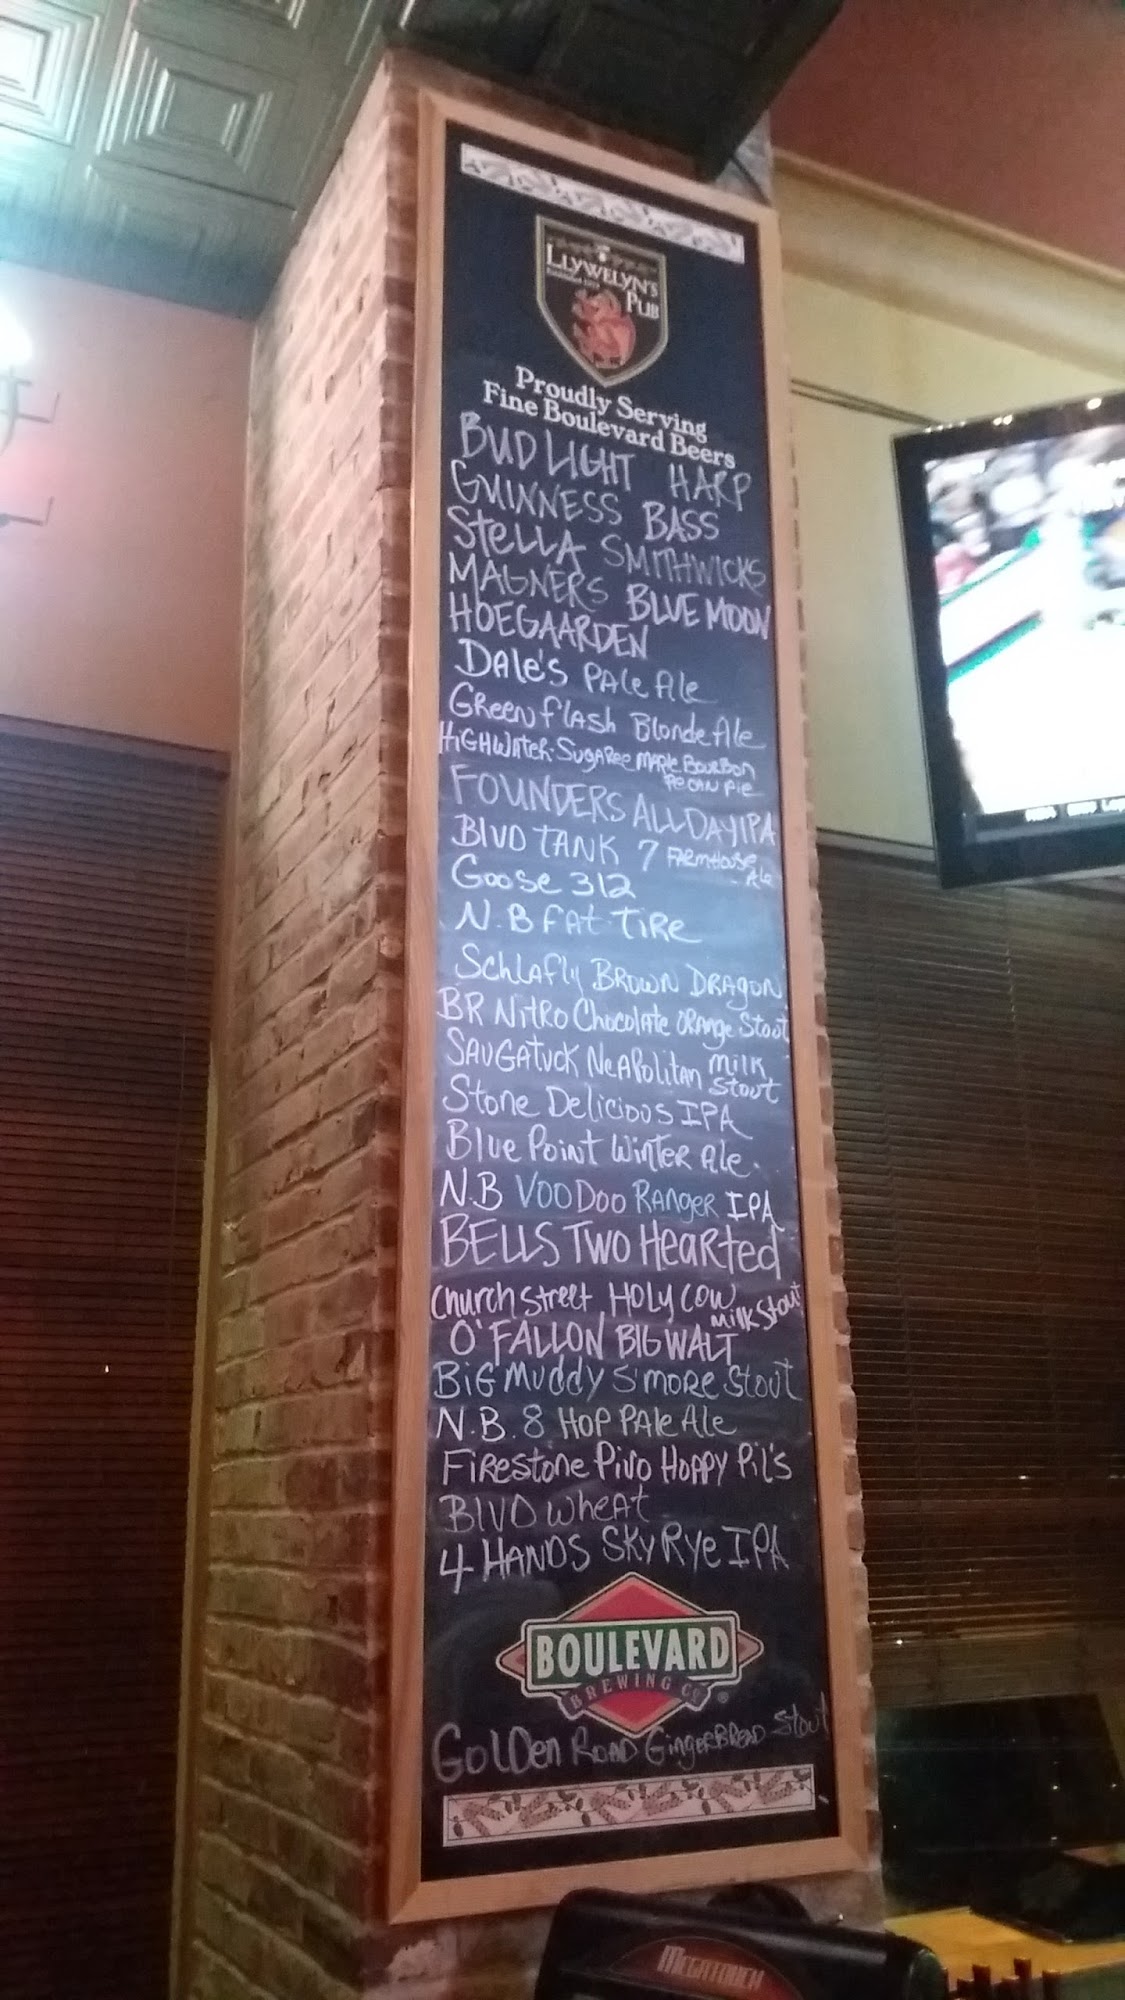 LLYWELYN'S
PUB
Proudly Serving
Fine Boulevard Beers
BUD LIGHT HARP
GUINNESS BASS
STELLA SMITHWICKS
MAGNERS BLUE MOON
HOEGAARDEN
DALE'S PALE ALE
GREEN FLASH BLONDE ALE
HIGHWATER-SUGAREE MAPLE BOURBON
PECAN PIE
FOUNDERS ALL DAY IPA
BLVD TANK 7 FARMHOUSE
ALE
GOOSE 312
N.B FAT TIRE
SCHLAFLY BROWN DRAGON
BR NITRO CHOCOLATE ORANGE STOUT
SAUGATUCK NEAPOLITAN MILK
STOUT
STONE DELICIOUS IPA
BLUE POINT WINTER ALE.
N.B VOODOO RANGER IPA
BELLS TWO HEARTED
CHURCH STREET HOLY COW
MILK STOUT
O'FALLON BIG WALT
BIG MUDDY S'MORE STOUT
N.B. 8 HOP PALE ALE
FIRESTONE PIVO HOPPY PIL'S
BLVD WHEAT
4 HANDS SKY RYE IPA
BOULEVARD
BREWING CO
®
GOLDEN ROAD GINGERBREAD STOUT
MEGATOUCH